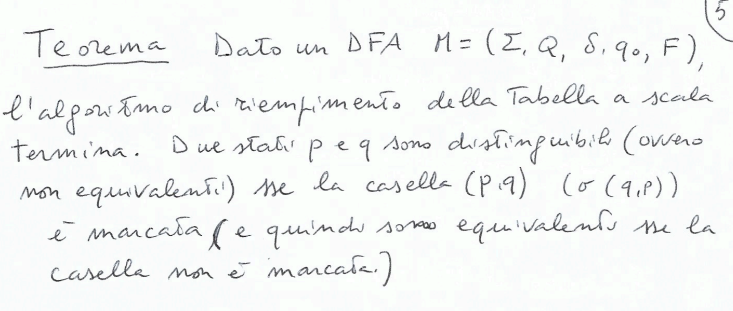 5
Teorema Dato un DFA M = (Σ, Q, δ, q₀, F),
l'algoritmo di riempimento della Tabella a scala
termina. Due stati p e q sono distinguibili (ovvero
non equivalenti) sse la casella (p,q) (o (q,p))
è marcata (e quindi sono equivalenti sse la
casella non è marcata.)